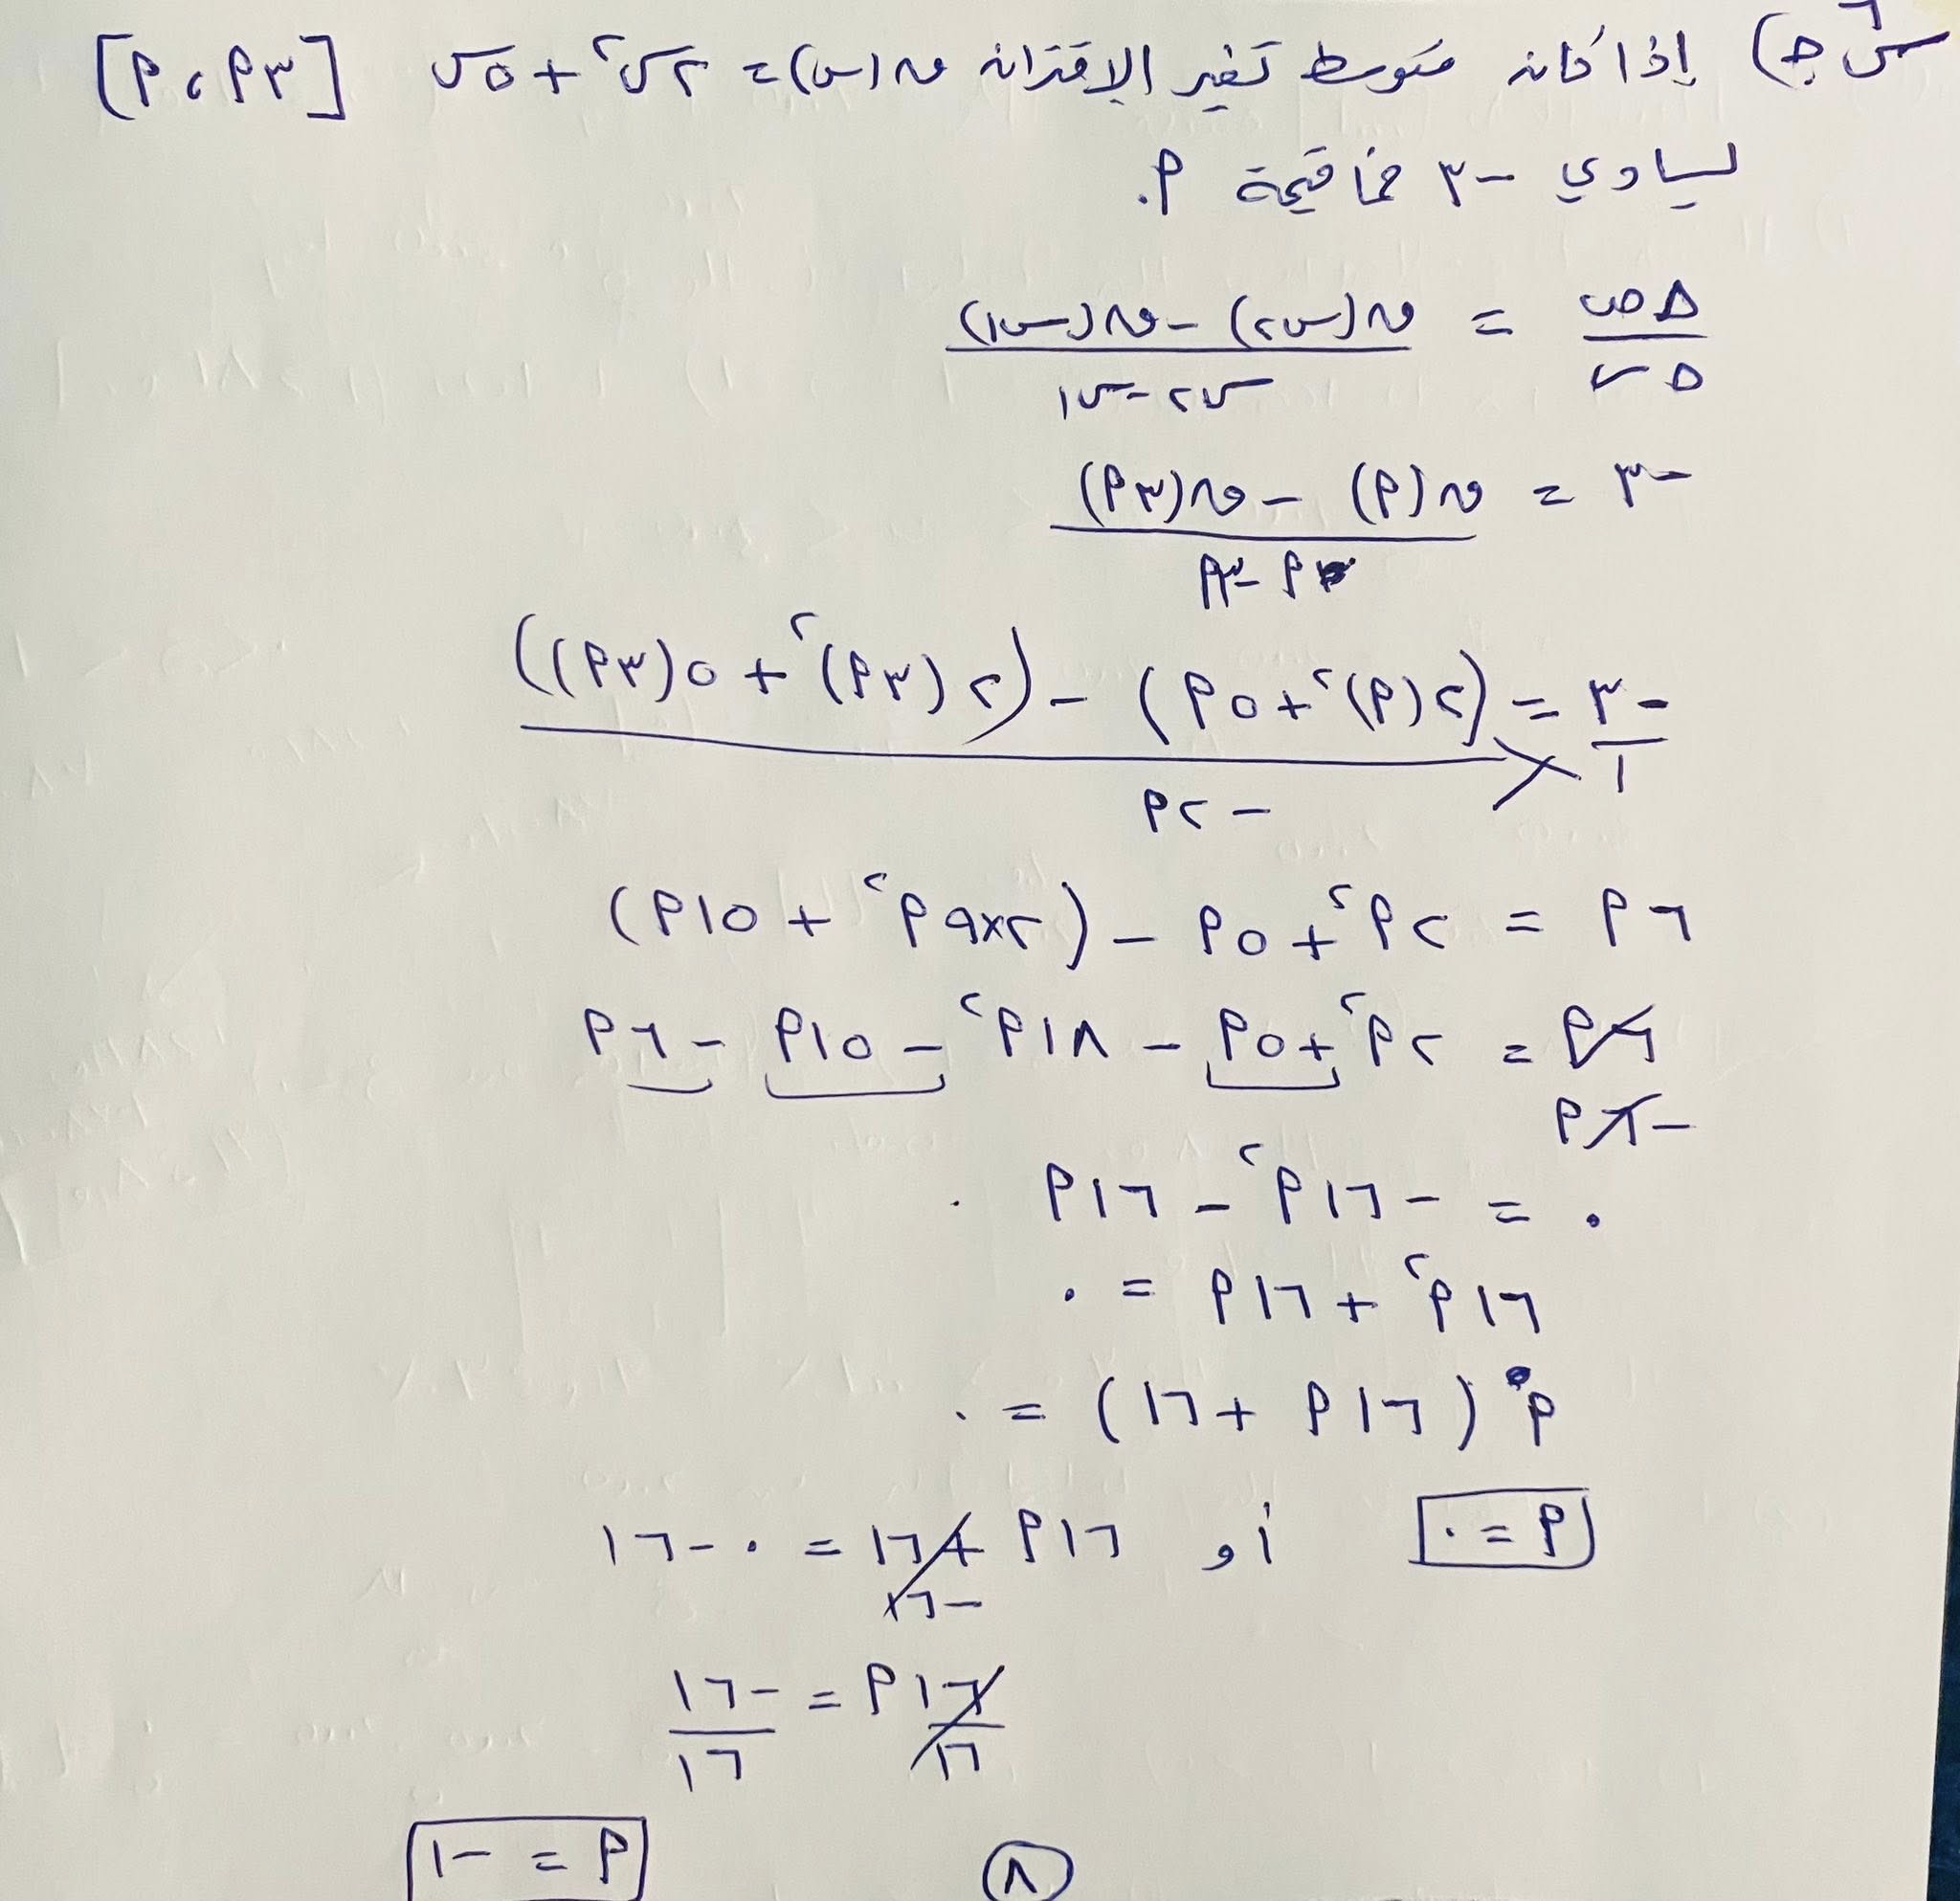 س٦ ج) إذا كان متوسط تغير الإقتران ق(س) = ٢س² + ٥س [٣م ، م]
يساوي -٣ فما قيمة م.
Δص / Δس = (ق(س٢) - ق(س١)) / (س٢ - س١)
-٣ = (ق(م) - ق(٣م)) / (م - ٣م)
-٣/١ = ((٢(م)² + ٥م) - (٢(٣م)² + ٥(٣م))) / -٢م
٦م = ٢م² + ٥م - (٢×٩م² + ١٥م)
٦م = ٢م² + ٥م - ١٨م² - ١٥م - ٦م
-٦م
٠ = -١٦م² - ١٦م
١٦م² + ١٦م = ٠
م(١٦م + ١٦) = ٠
م = ٠ أو ١٦م + ١٦ = ٠ - ١٦
-١٦
١٦م/١٦ = -١٦/١٦
م = -١
٨